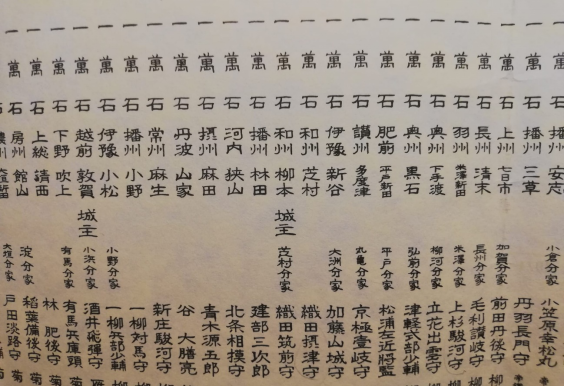 一萬石 播州 安志 小倉分家 小笠原幸松丸
一萬石 播州 三草 丹羽長門守
一萬石 上州 七日市 加賀分家 前田丹後守
一萬石 長州 清末 長州分家 毛利讃岐守
一萬石 羽州 米澤新田 米澤分家 上杉駿河守
一萬石 奥州 下手渡 柳河分家 立花出雲守
一萬石 奥州 黒石 弘前分家 津軽式部少輔
一萬石 肥前 平戸新田 平戸分家 松浦左近将監
一萬石 讃州 多度津 丸亀分家 京極壹岐守
一萬石 伊豫 新谷 大洲分家 加藤山城守
一萬石 和州 芝村 織田摂津守
一萬石 和州 柳本 城主 芝村分家 織田筑前守
一萬石 播州 林田 建部三次郎
一萬石 河内 狭山 北条相模守
一萬石 摂州 麻田 青木源五郎
一萬石 丹波 山家 谷 大膳亮
一萬石 常州 麻生 新庄駿河守
一萬石 播州 小野 一柳対馬守
一萬石 伊豫 小松 小野分家 一柳兵部少輔
一萬石 越前 敦賀 城主 小浜分家 酒井飛騨守 雁
一萬石 下野 吹上 有馬分家 有馬兵庫頭 菊
一萬石 上総 請西 林 肥後守 菊
一萬石 房州 館山 淀分家 稲葉備後守 菊
石 大垣分家 戸田淡路守